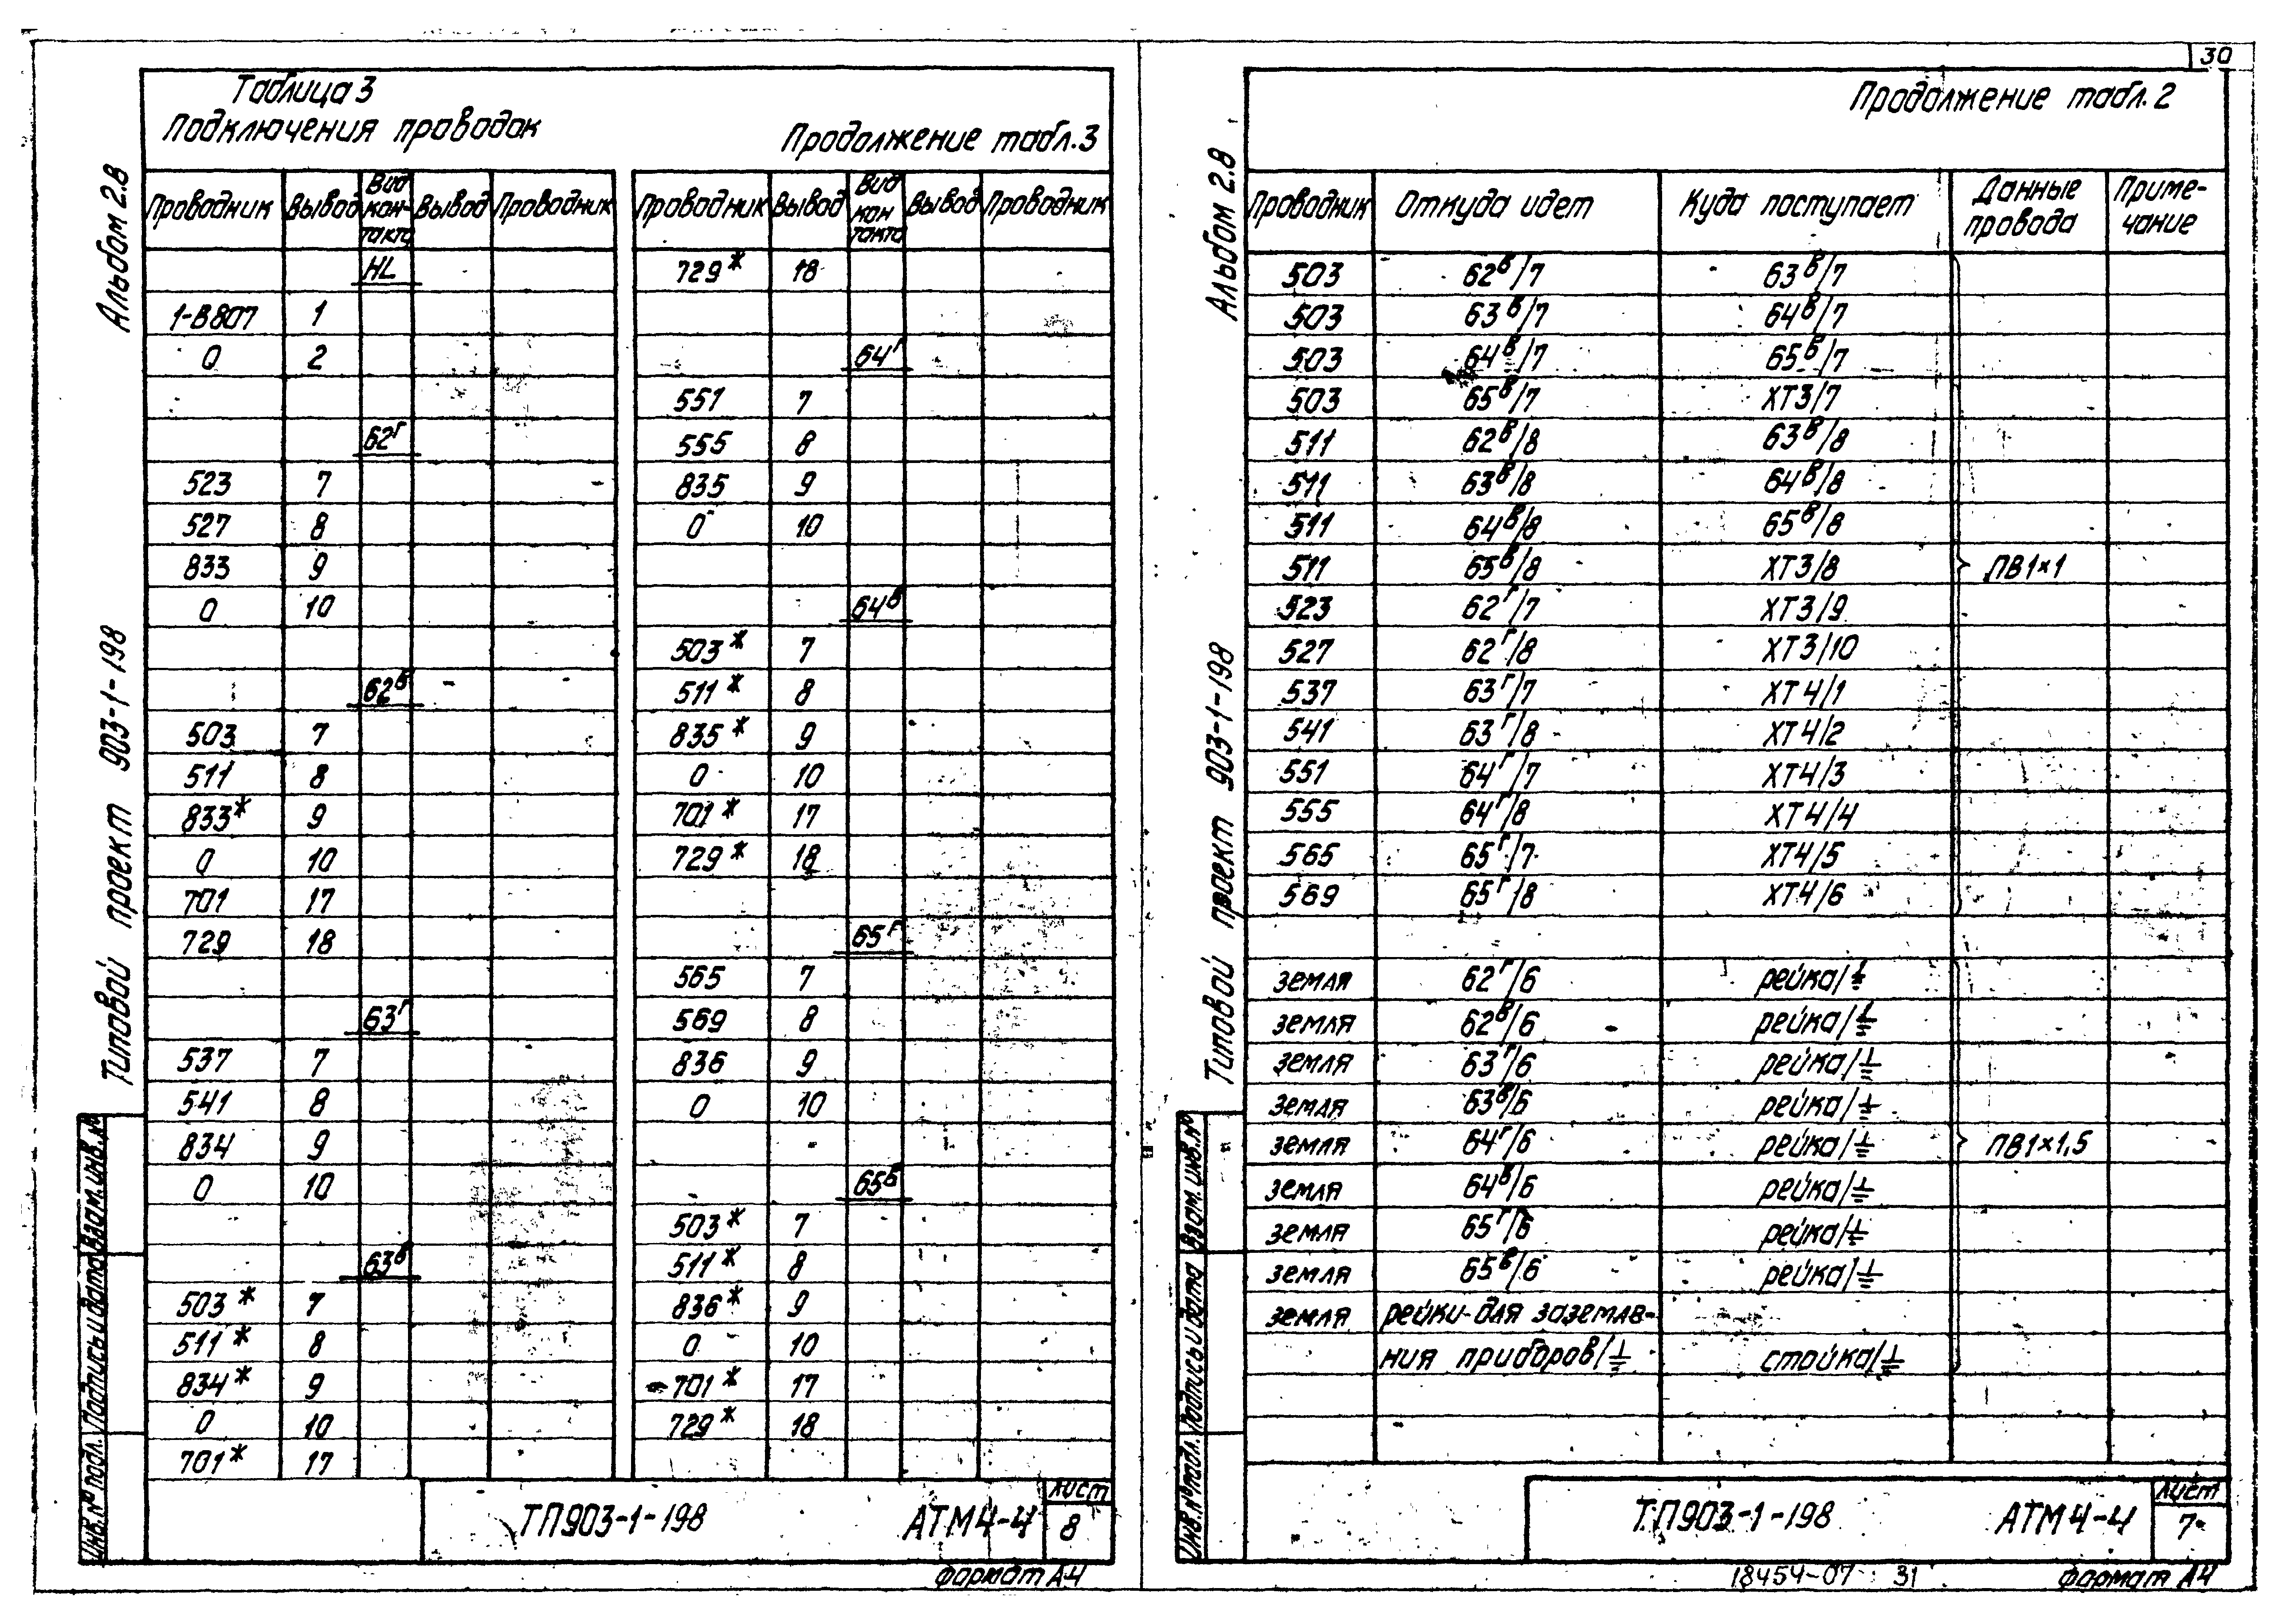 30
Таблица 3
Подключения проводок
Продолжение табл.3
Проводник Вывод Вид контакта Вывод Проводник
HL
1-В807 1
0 2
62г
523 7
527 8
833 9
0 10
62в
503 7
511 8
833* 9
0 10
701 17
729 18
63г
537 7
541 8
834 9
0 10
63в
503* 7
511* 8
834* 9
0 10
701* 17
Проводник Вывод Вид контакта Вывод Проводник
729* 18
64г
551 7
555 8
835 9
0 10
64в
503* 7
511* 8
835* 9
0 10
701* 17
729* 18
65г
565 7
569 8
836 9
0 10
65в
503* 7
511* 8
836* 9
0 10
701* 17
729* 18
ТП903-1-198 АТМ4-4
Лист
8
Формат А4
Альбом 2.8
Типовой проект 903-1-198
Инв.№ подл. Подпись и дата Взам.инв.№
Продолжение табл.2
Проводник Откуда идет Куда поступает Данные провода Примечание
503 62в/7 63в/7
503 63в/7 64в/7
503 64в/7 65в/7
503 65в/7 ХТ3/7
511 62в/8 63в/8
511 63в/8 64в/8
511 64в/8 65в/8
511 65в/8 ХТ3/8 ПВ1×1
523 62г/7 ХТ3/9
527 62г/8 ХТ3/10
537 63г/7 ХТ4/1
541 63г/8 ХТ4/2
551 64г/7 ХТ4/3
555 64г/8 ХТ4/4
565 65г/7 ХТ4/5
569 65г/8 ХТ4/6
земля 62г/6 рейка/⏚
земля 62в/6 рейка/⏚
земля 63г/6 рейка/⏚
земля 63в/6 рейка/⏚
земля 64г/6 рейка/⏚ ПВ1×1,5
земля 64в/6 рейка/⏚
земля 65г/6 рейка/⏚
земля 65в/6 рейка/⏚
земля рейки для заземле-
ния приборов/⏚ стойка/⏚
ТП903-1-198 АТМ4-4
Лист
7
18454-07 31
Формат А4
Альбом 2.8
Типовой проект 903-1-198
Инв.№ подл. Подпись и дата Взам.инв.№